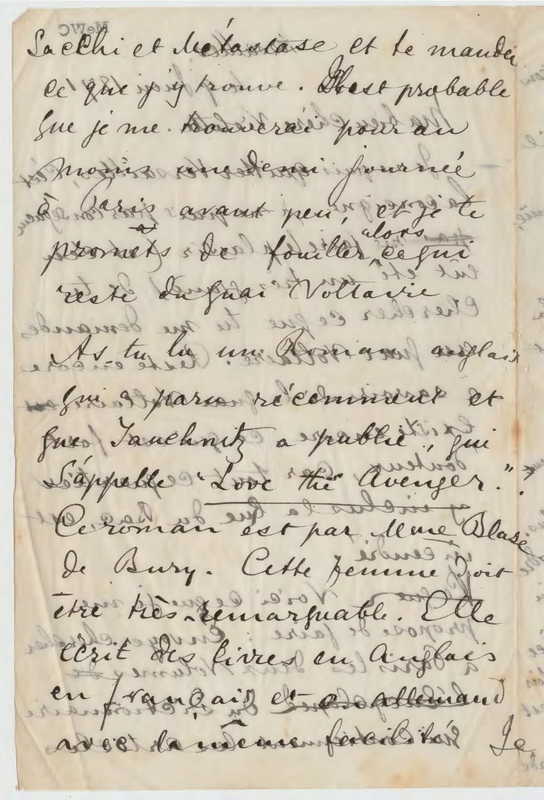 Sacchi et Métastase et te mander
ce que j'y trouve. Il est probable
que je me trouverai pour au
moins une demi journée
à Paris avant peu, et je te
promets de fouiller alors ce qui
reste du quai Voltaire
As-tu lu un Roman anglais
qui a paru récemment et
que Tauchnitz a publié, qui
s'appelle "Love the Avenger."?
Ce roman est par Mme Blaze
de Bury. Cette femme doit
être très-remarquable. Elle
écrit des livres en Anglais
en français et en allemand
avec la même facilité. Je